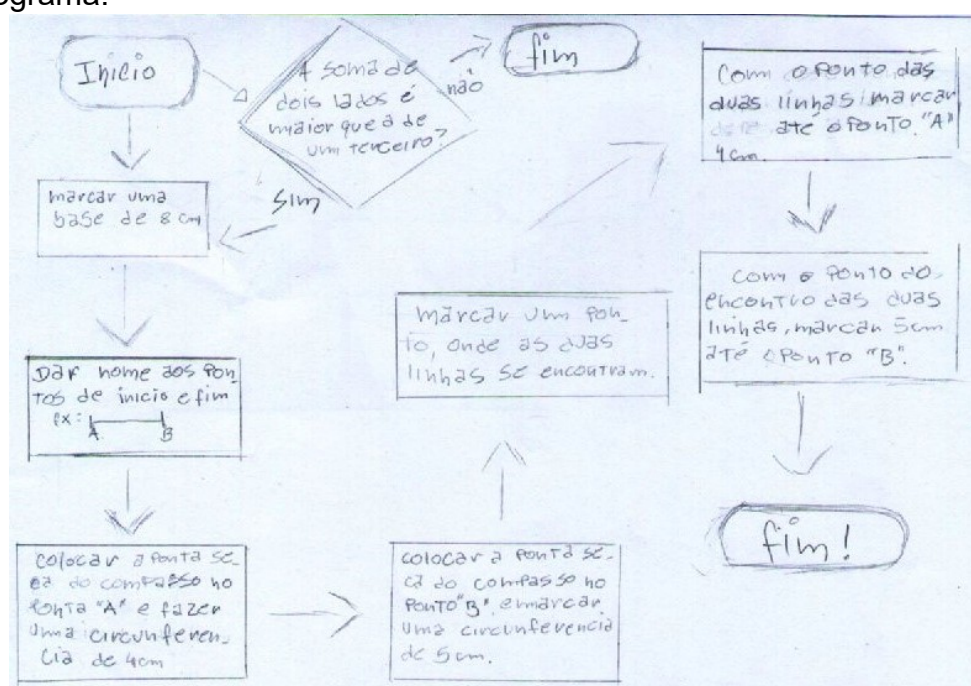 ograma:
Início
A soma de
dois lados é
maior que a de
um terceiro?
não
fim
sim
marcar uma
base de 8 cm
Dar nome aos pon_
tos de inicio e fim
ex:
A B
colocar a ponta se_
ca do compasso no
ponta "A" e fazer
uma circunferen_
cia de 4cm
colocar a ponta se_
ca do compasso no
ponto "B", e marcar
uma circunferencia
de 5cm.
marcar um pon_
to, onde as duas
linhas se encontram.
Com o ponto das
duas linhas marcar
até o ponto "A"
4cm.
Com o ponto do
encontro das duas
linhas, marcar 5cm
até o ponto "B".
fim!